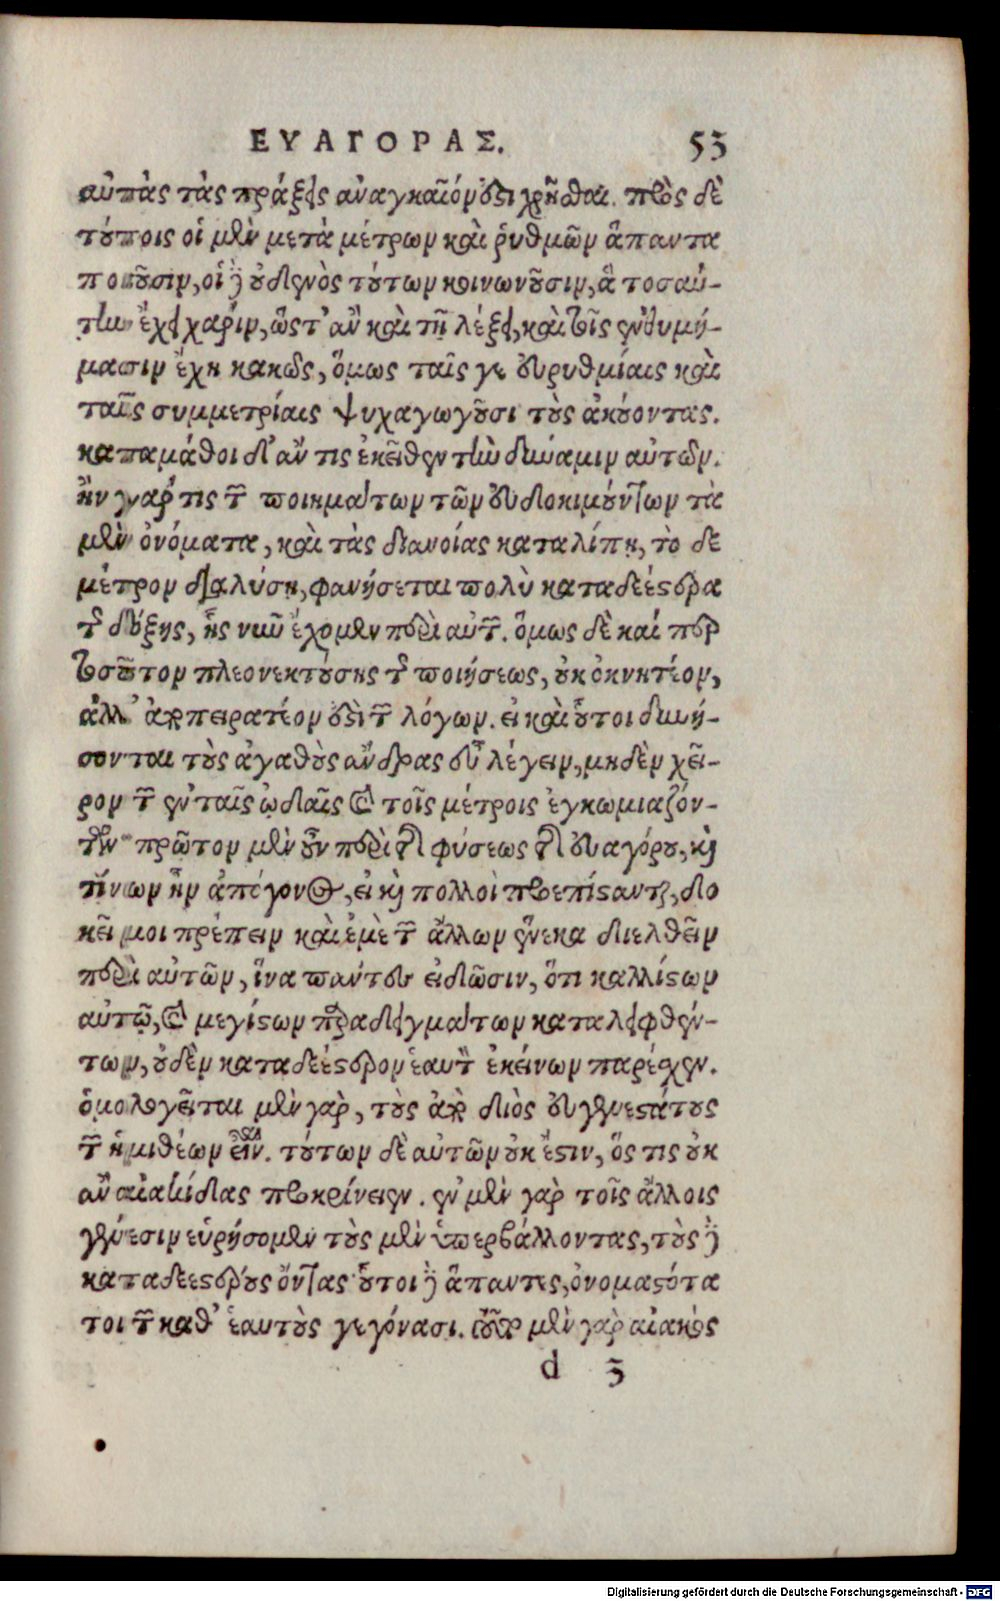 ΕΥΑΓΟΡΑΣ. 53
αὐτὰς τὰς πράξεις ἀναγκαῖόν ἐστι χρῆσθαι. πρὸς δὲ
τούτοις οἱ μὲν μετὰ μέτρων καὶ ῥυθμῶν ἅπαντα
ποιοῦσιν, οἱ δ᾽ οὐδενὸς τούτων κοινωνοῦσιν, ἃ τοσαύ-
την ἔχει χάριν, ὥστ᾽ ἂν καὶ τῇ λέξει, καὶ τοῖς ἐνθυμή-
μασιν ἔχη κακῶς, ὅμως ταῖς γε εὐρυθμίαις καὶ
ταῖς συμμετρίαις ψυχαγωγοῦσι τοὺς ἀκούοντας.
καταμάθοι δ᾽ ἄν τις ἐκεῖθεν τὴν δύναμιν αὐτῶν.
ἢν γάρ τις τῶν ποιημάτων τῶν εὐδοκιμούντων τὰ
μὲν ὀνόματα, καὶ τὰς διανοίας καταλίπῃ, τὸ δὲ
μέτρον διαλύσῃ, φανήσεται πολὺ καταδεέστερα
τῆς δόξης, ἧς νῦν ἔχομεν περὶ αὐτῶν. ὅμως δὲ καί περ
τοσοῦτον πλεονεκτούσης τῆς ποιήσεως, οὐκ ὀκνητέον,
ἀλλ᾽ ἀποπειρατέον ἐστὶ τῶν λόγων. εἰ καὶ οὗτοι δυνή-
σονται τοὺς ἀγαθοὺς ἄνδρας εὖ λέγειν, μηδὲν χεῖ-
ρον τῶν ἐν ταῖς ᾠδαῖς καὶ τοῖς μέτροις ἐγκωμιαζόν-
των πρῶτον μὲν οὖν περὶ τῆς φύσεως τῆς Εὐαγόρου, καὶ
τίνων ἦν ἀπόγονος, εἰ καὶ πολλοὶ προεπίστανται, δο
κεῖ μοι πρέπειν καὶ ἐμὲ τῶν ἄλλων ἕνεκα διελθεῖν
περὶ αὐτῶν, ἵνα πάντες εἰδῶσιν, ὅτι καλλίστων
αὐτῷ, καὶ μεγίστων παραδειγμάτων καταλειφθέν-
των, οὐδὲν καταδεέστερον ἑαυτὸν ἐκείνων παρέσχεν.
ὁμολογεῖται μὲν γὰρ, τοὺς ἀπὸ διὸς εὐγενεστάτους
τῶν ἡμιθέων εἶναι. τούτων δὲ αὐτῶν οὐκ ἔστιν, ὅς τις οὐκ
ἂν αἰακίδας προκρίνειεν. ἐν μὲν γὰρ τοῖς ἄλλοις
γένεσιν εὑρήσομεν τοὺς μὲν ὑπερβάλλοντας, τοὺς δὲ
καταδεεστέρους ὄντας οὗτοι δ᾽ ἅπαντες, ὀνομαστότα
τοι τῶν καθ᾽ ἑαυτοὺς γεγόνασι. τοῦτο μὲν γὰρ αἰακὸς
d 3
Digitalisierung gefördert durch die Deutsche Forschungsgemeinschaft - DFG